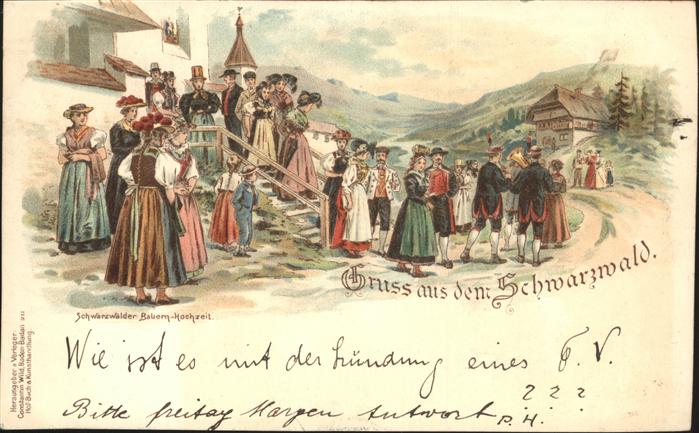 Gruss aus dem Schwarzwald.
Schwarzwälder Bauern-Hochzeit.
Herausgeber u. Verleger:
Constantin Wild, Baden Baden
Hof-Buch & Kunsthandlung.
Wie ist es mit der Gründung eines F. V.
? ? ?
Bitte freitag Morgen Antwort P. H.